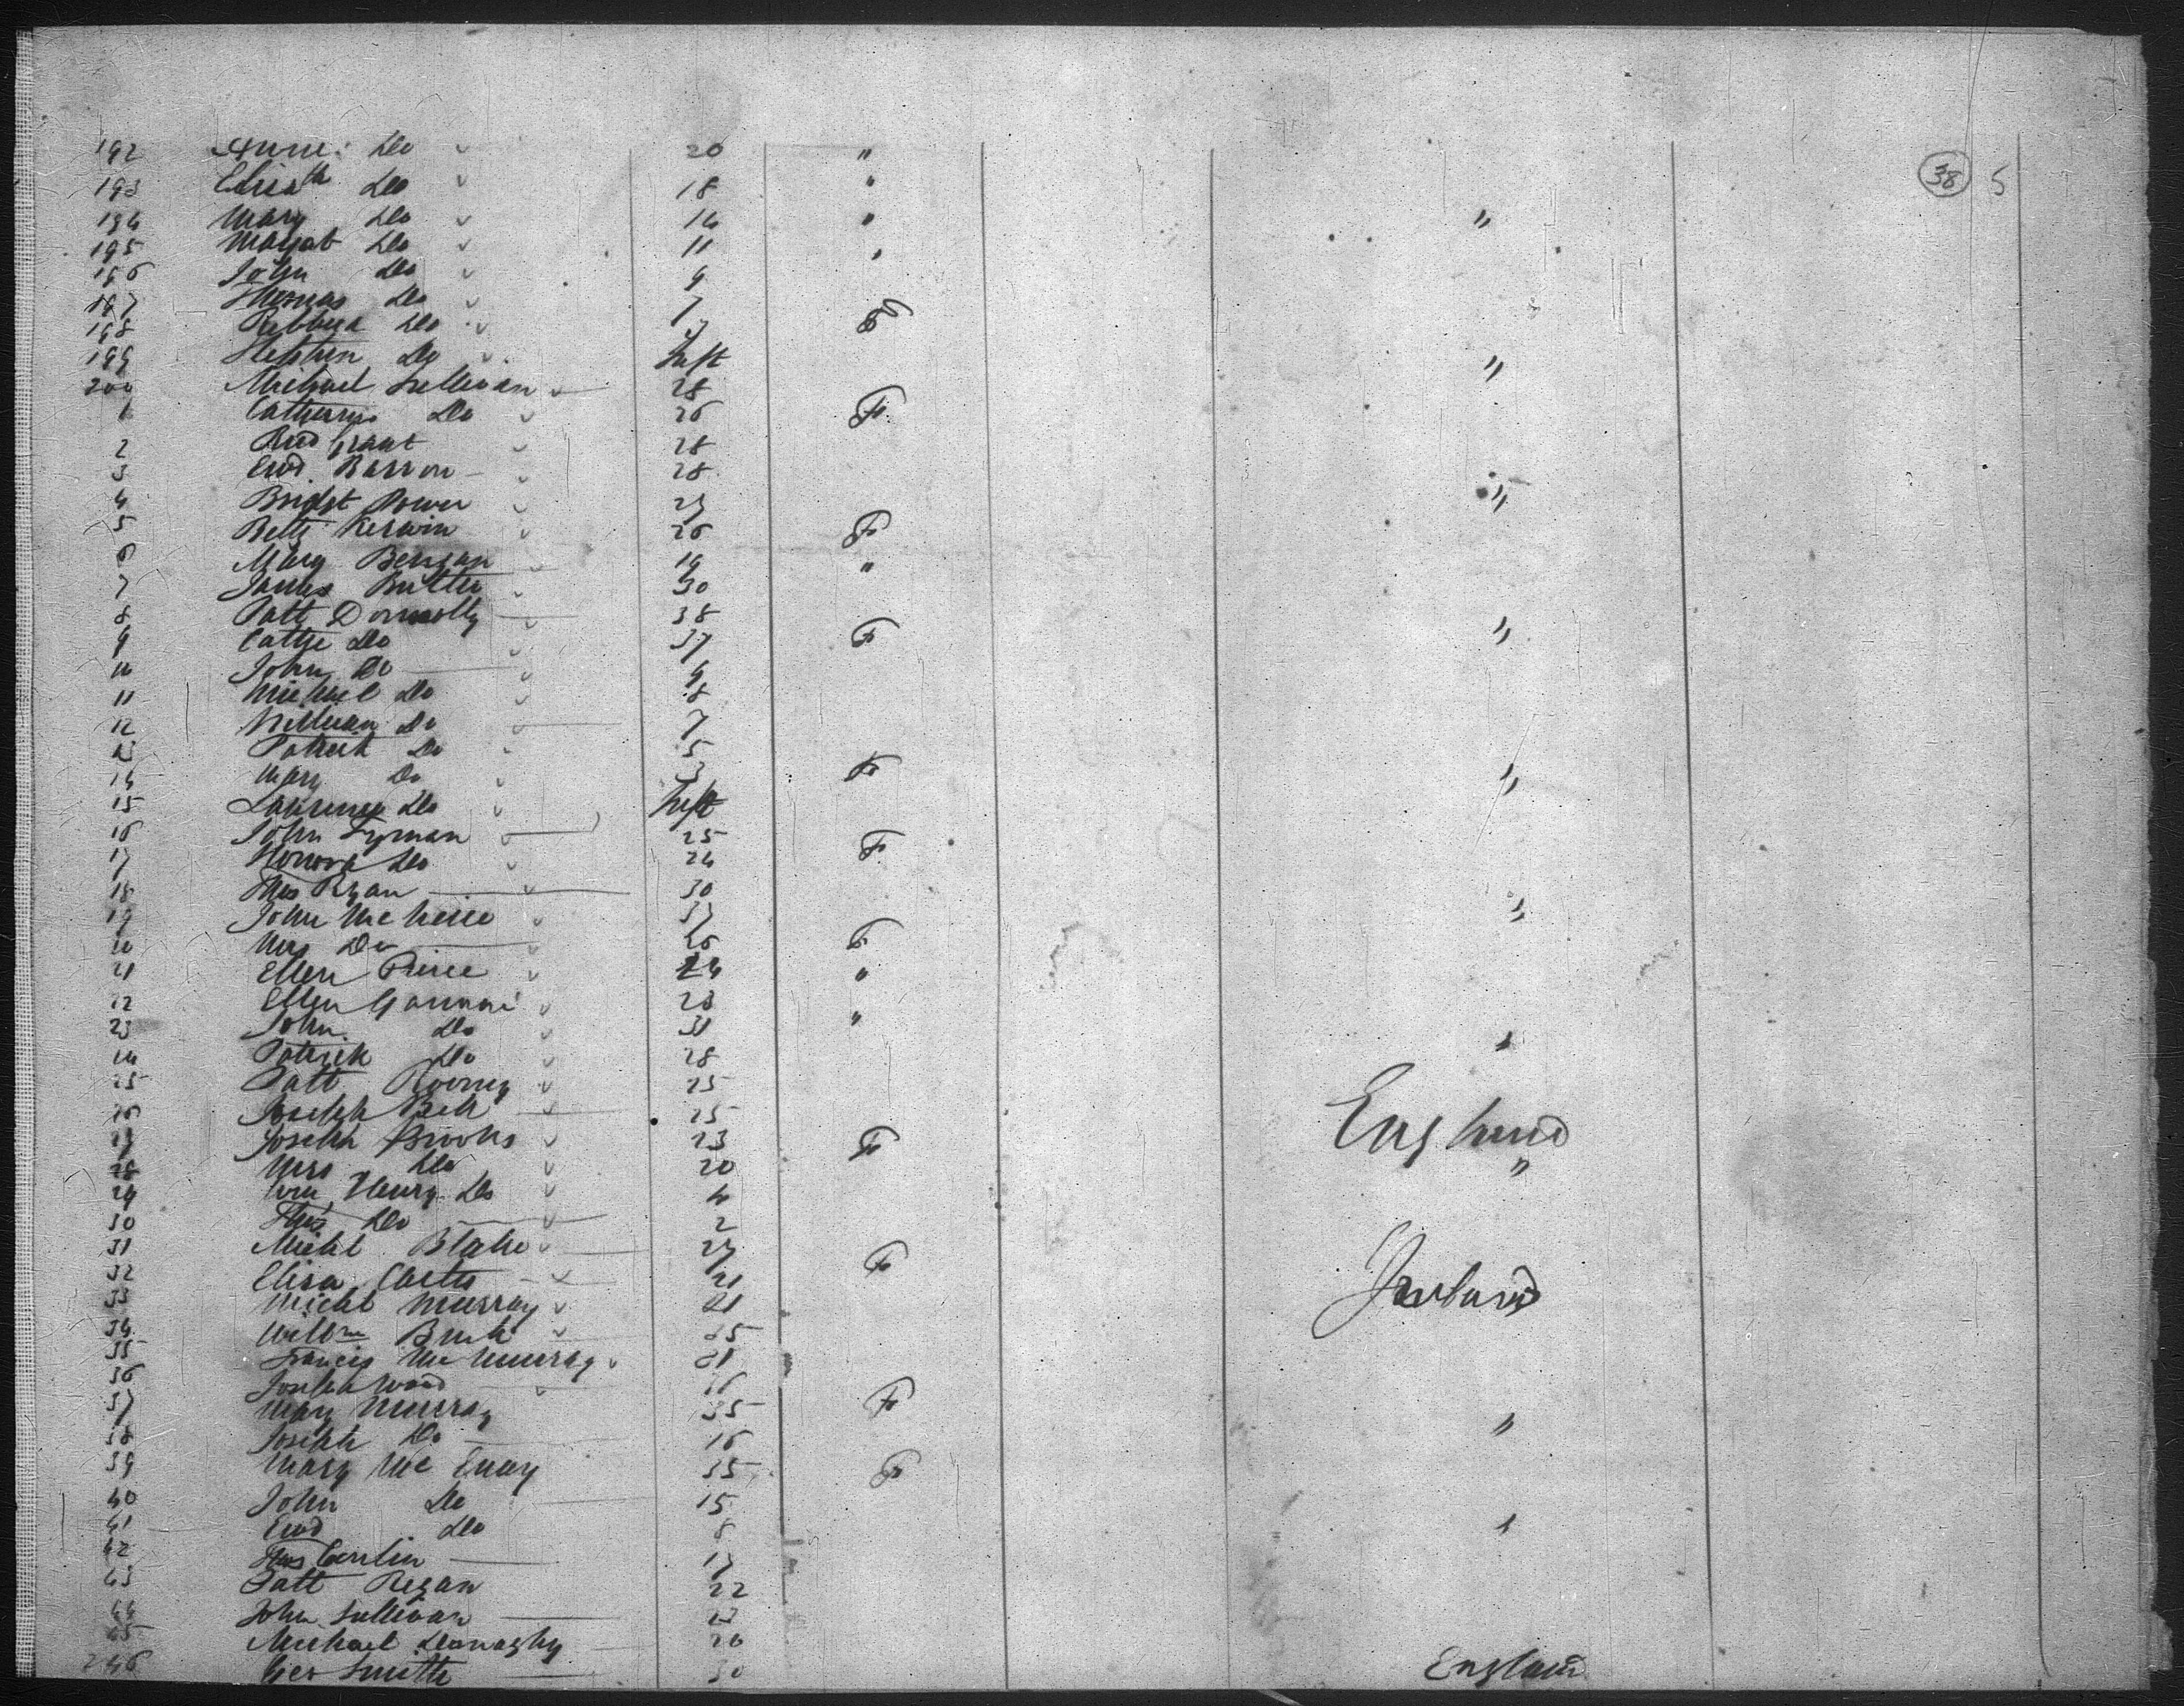 192 Anne Do 20 "
(38) 5
193 Elizath Do 18 "
194 Mary Do 14 " "
195 Margat Do 11 "
196 John Do 9
197 Thomas Do 7
198 Rebbeca Do
199 Stephen Do Inft "
200 Michael Sullivan 28
1 Catherine Do 26 F
2 Grant 28
3 Edwd Barron 28
4 Bridget Power 27 "
5 Bette Kerwin 26 F
6 Mary Bergan 19 "
7 James Butler 30
8 Patt Donnolly 38 "
9 Cathe Do 37 F
10 John Do 9
11 Michael Do 8
12 William Do 7
13 Patrick Do 5
14 Mary Do 3 F "
15 Laurence Do Inft
16 John Tynan 25
17 Honora Do 24 F
18 Thos Ryan 30
19 John 37 "
20 Mrs Do 26 F
21 Ellen Pierce 24 "
22 Ellen 28 "
23 John Do 31 "
24 Patrick Do 28
25 Patt Rooney 25
26 Joseph Bell 25 England
27 Joseph Brooks 23
28 Mrs Do 20 F "
29 Wm Henry Do 4
30 Thos Do 2
31 Michl Blake 27 Ireland
32 Eliza 21 F
33 Michl Murray 21
34 Willm 25
35 Francis McMurray 21
36 Joseph Wood 16
37 Mary Murray 35 F "
38 Joseph Do 16
39 Mary Mc Evoy 35 F
40 John Do 15
41 Edwd Do 8 "
42 Thos Carlin 17
43 Patt Regan 22
44 John Sullivan
45 Michael Donaghy 20
246 Geo Smith 30 England